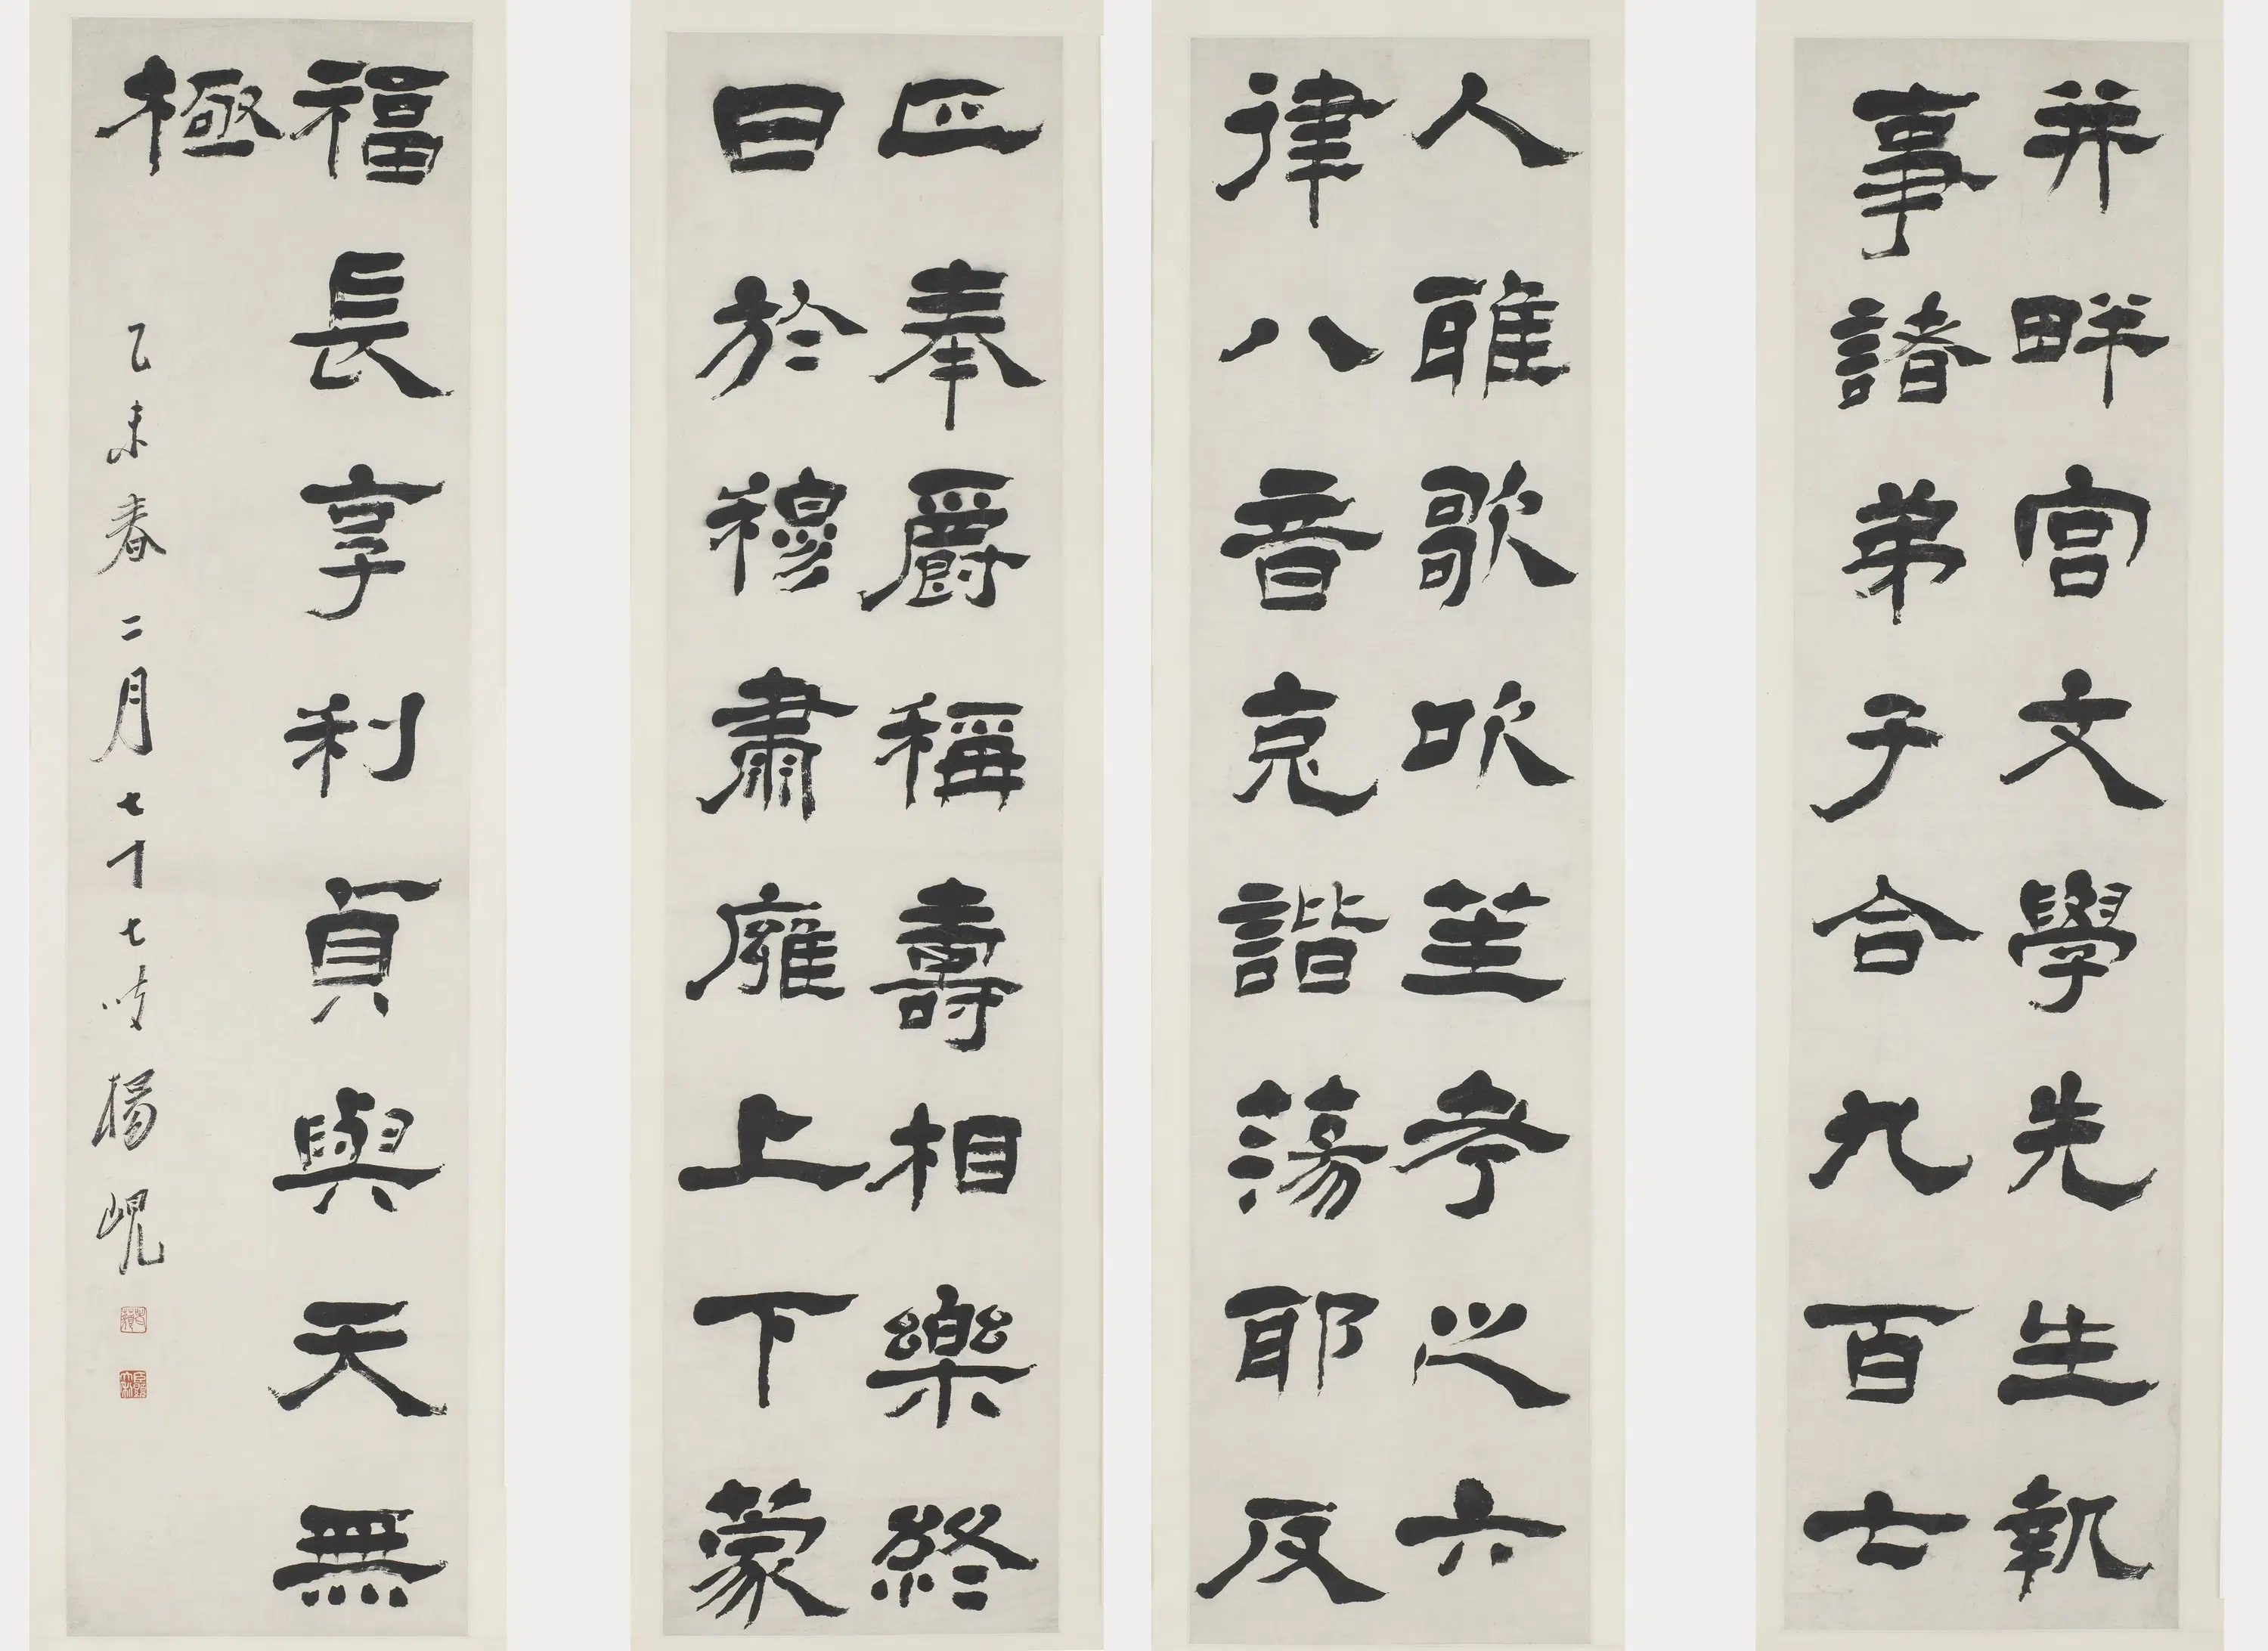 并畔宮文學先生執
事諸弟子合九百七
人雅歌吹笙考之六
律八音克諧蕩耶反
正奉爵稱壽相樂終
日於穆肅雍上下蒙
福長享利貞與天無
極
乙未春二月七十七叟楊峴